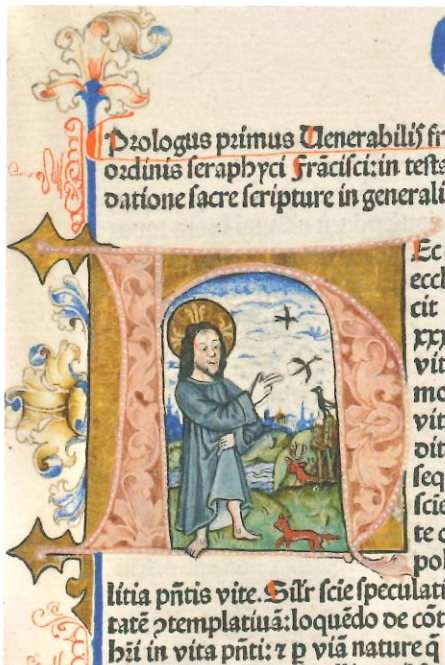 Prologus primus Uenerabilis fr
ordinis seraphyci Frãcisci: in testa
datione sacre scripture in generali
HEc
eccl
cit
xxx
vit
mo
vit
dit
seq
scie
te c
pol
litia pñtis vite. Silr scie speculati
tatẽ ꝯtemplatiuã: loquẽdo de cõt
hñi in vita pñti: ⁊ ꝑ viã nature q̃